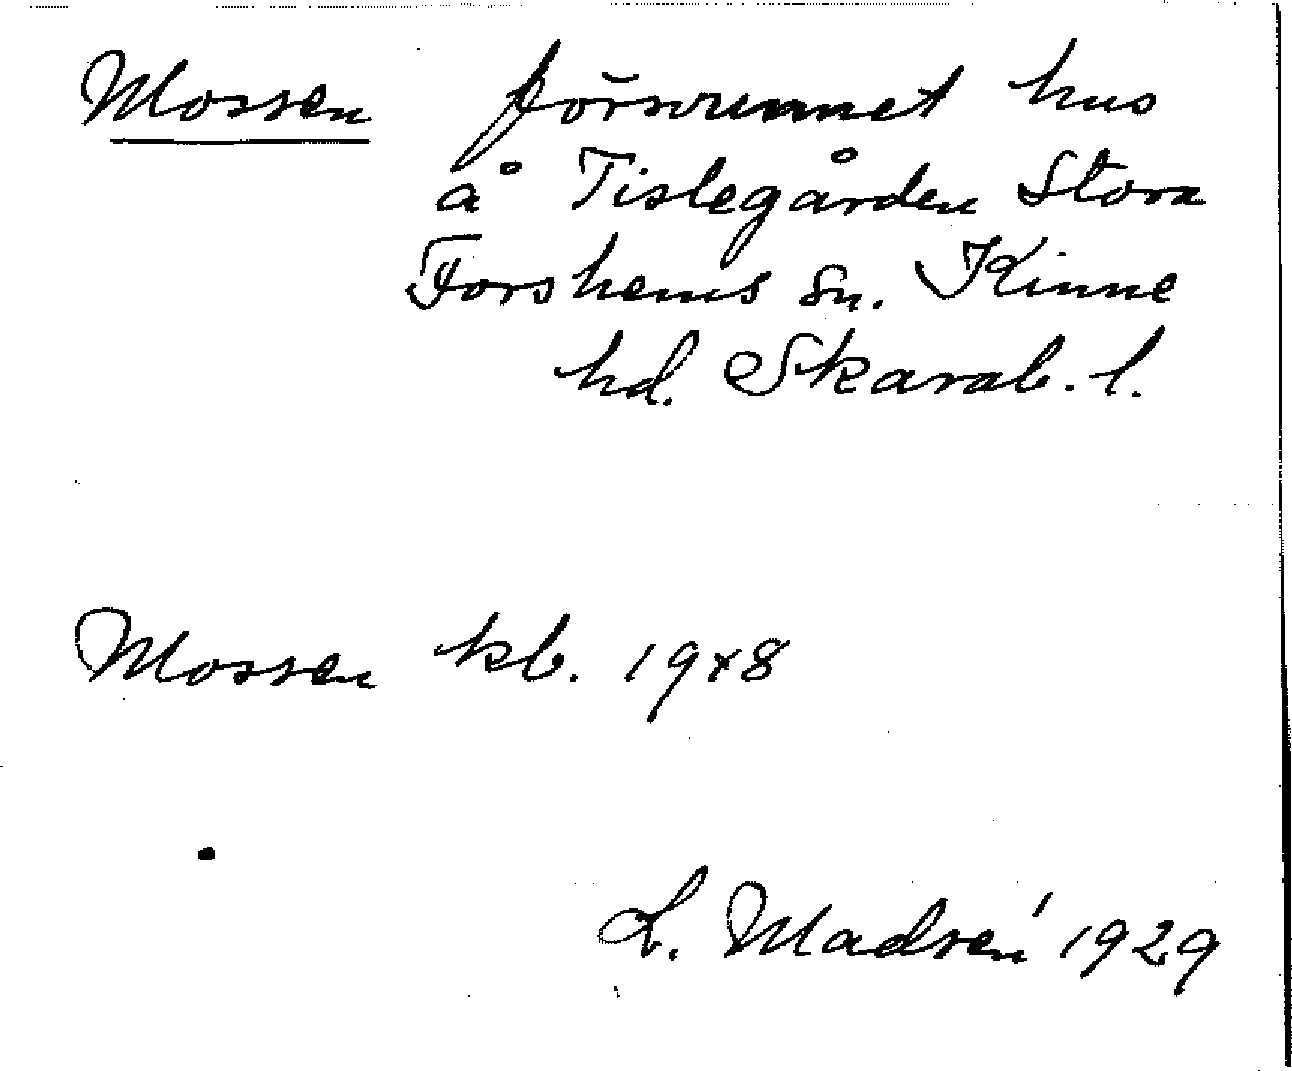 Mossen försvunnet hus
å Tislegården Stora
Forshems sn. Kinne
hd. Skarab. l.
Mossen kb. 19+8
L. Madsén 1929